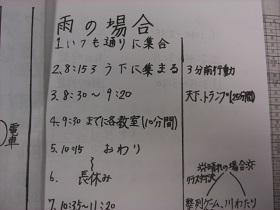 雨の場合
1.いつも通りに集合
2.8:15 3う下に集まる
3分前行動
3.8:30～9:20
天下、トランプ(25分間)
4.9:30までに各教室(10分間)
電車
5.10:15 おわり
※晴れの場合※
クラス対決
6. 長休み
整列ゲーム、川わたり
7.10:35～11:20